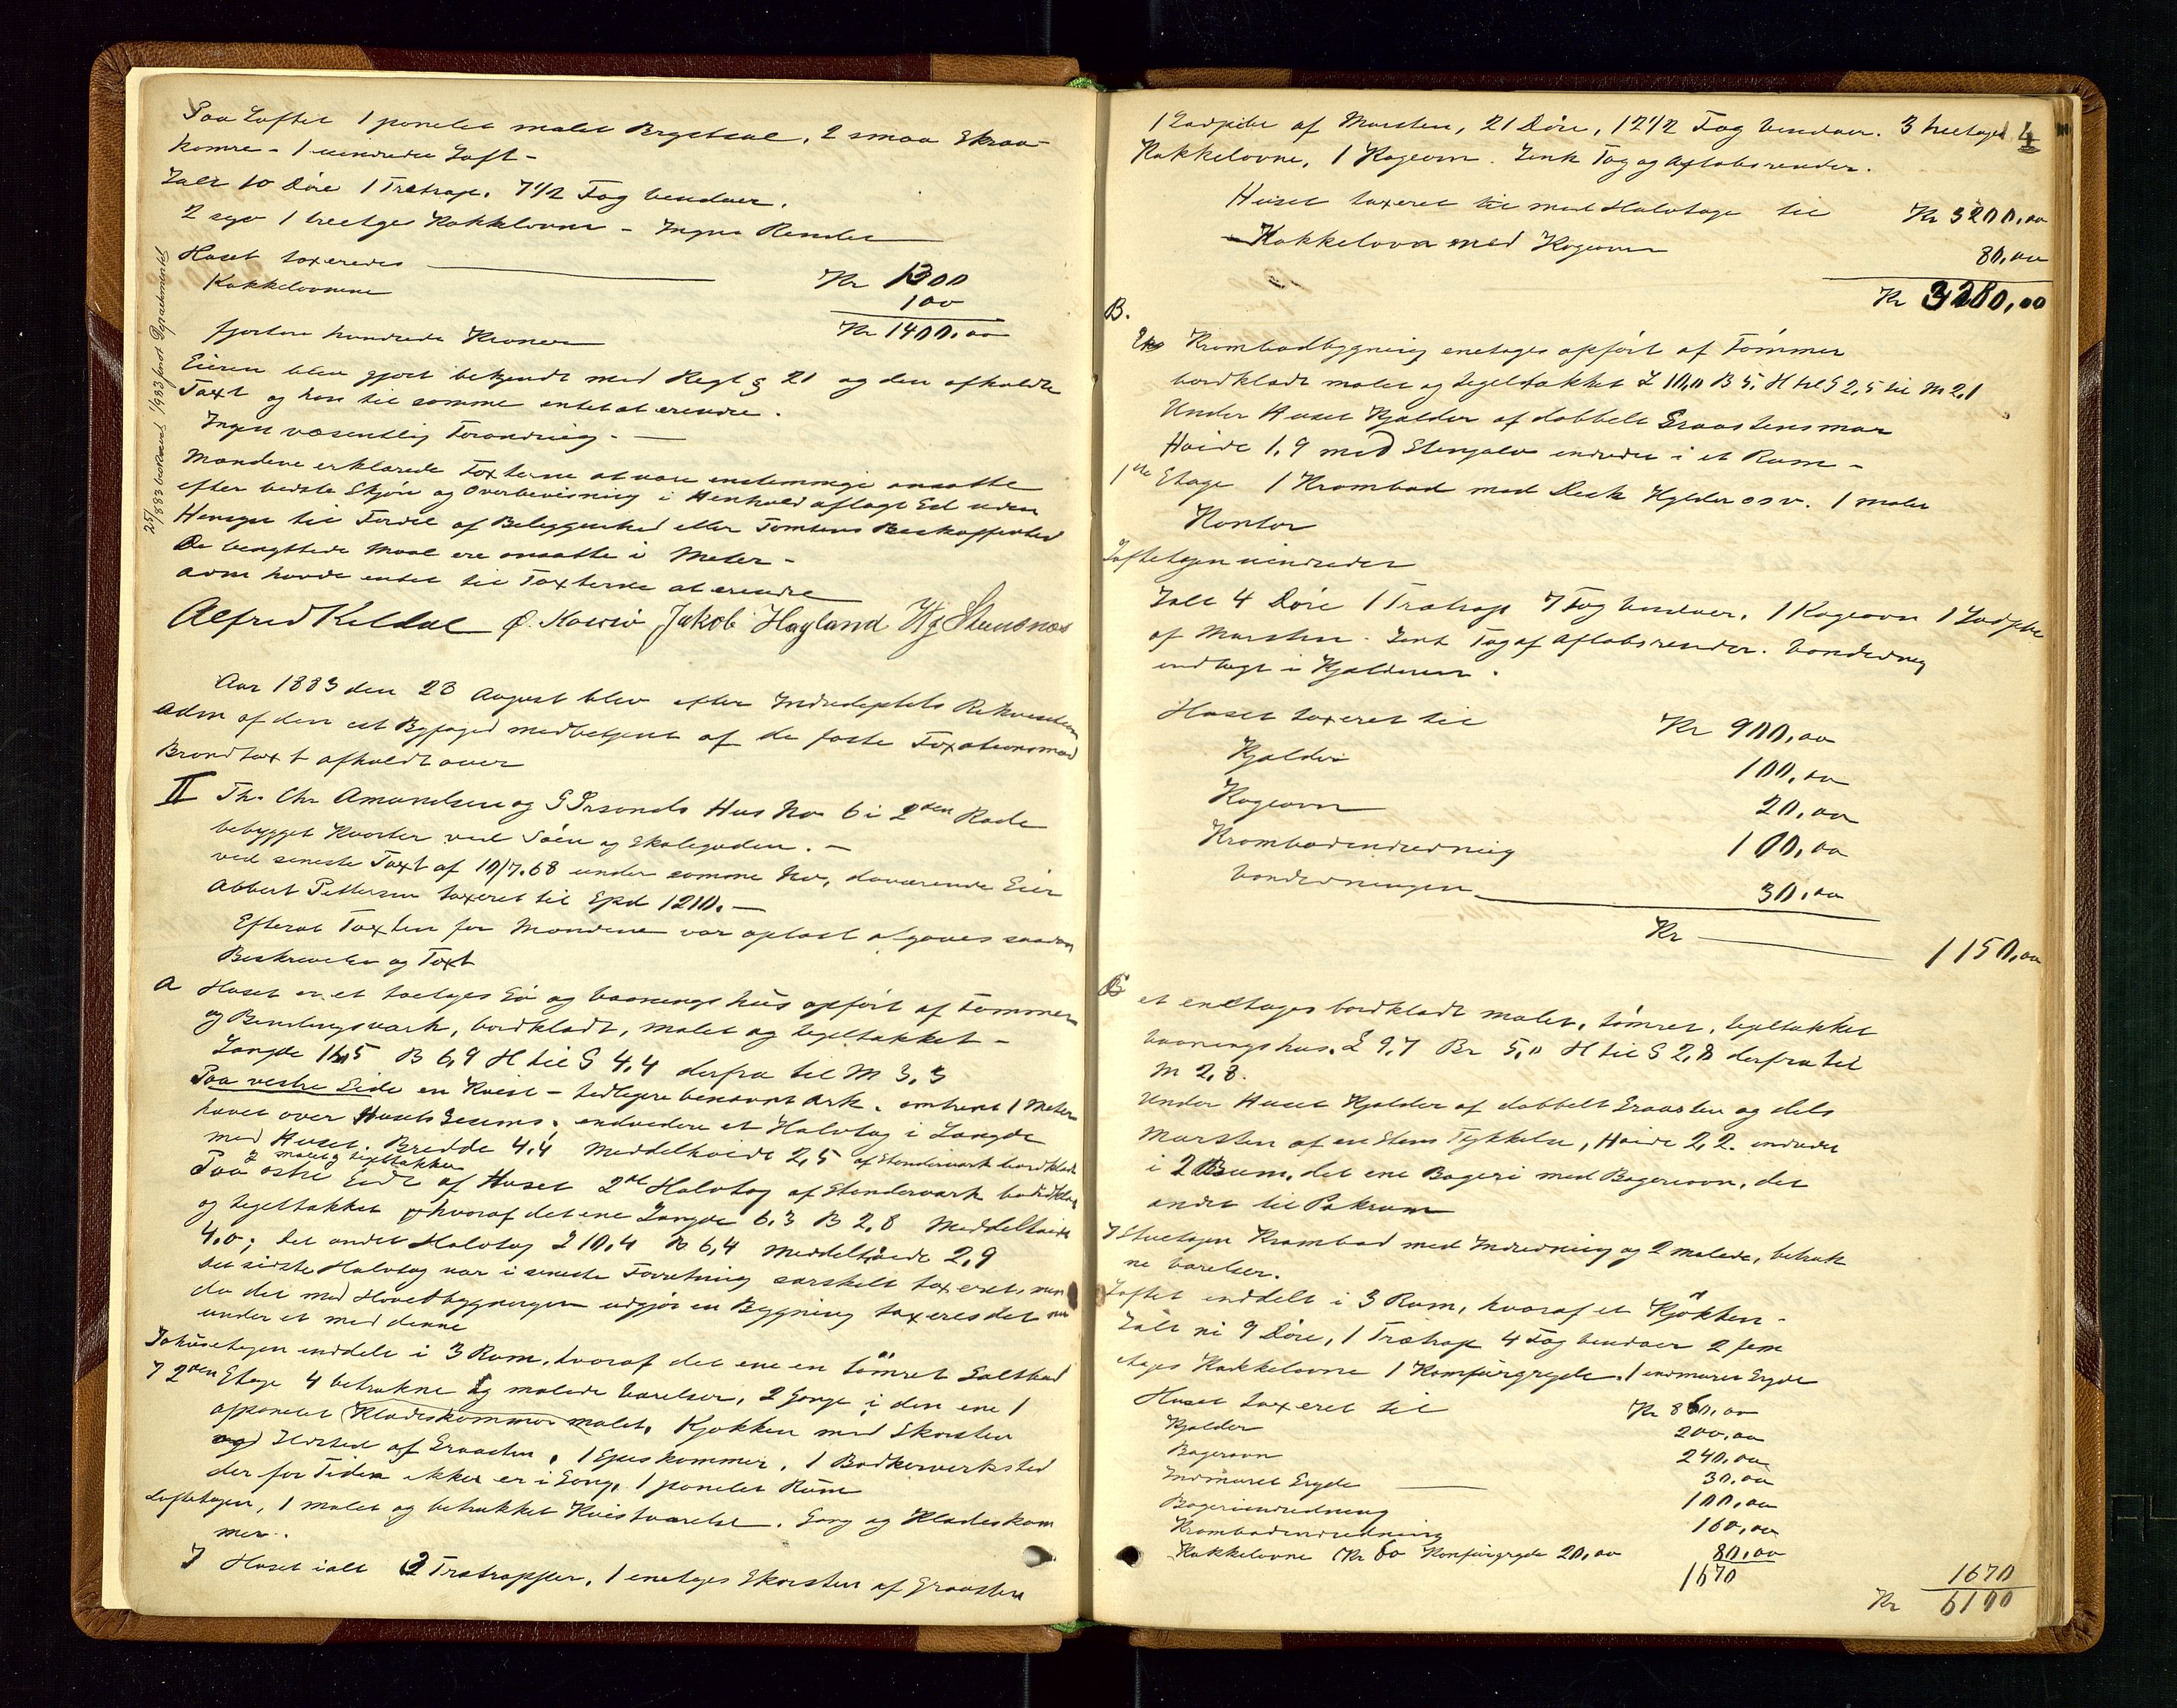 Paa Loftet 1 panelet malet Brystsal, 2 smaa Skraa-
kamre - 1 uindredet Loft -
Ialt 10 Döre 1 Trætrap. 7 1/2 Fag Venduer.
2 og 1 treetges Kakkelovne - Ingen Render
Huset taxeredes Kr 1300
Kakkelovnene 100
fjorten hundrede Kroner Kr 1400,00
Eieren blev gjort bekjendt med Regl § 21 og den afholdte
Taxt og han til samme entet at erindre.
Ingen væsentlig Forandring. -
Mændene erklærede Taxterne at være enstemmige ansatte
efter bedste Skjön og Overbevisning i Henhold aflagt Ed uden
Hensyn til Fordel af Beliggenhed eller Tomtens Beskaffenhed
De benyttede Maal ere ansatte i Meter -
Adm havde entet til Taxterne at erindre
Alfred Keldal Jakob Hagland
25/ 1883 foran Departementet
Aar 1883 den 23 August blev efter Indredeptets Rekvisition
Adm af den cst Byfoged medbetjent af de faste Taxationsmænd
Brandtaxt afholdt over
II Th. Chr Amundsen og Hus No 6 i 2den Rode
bebygget Kvarter ved Söen og Skolegaden. -
ved seneste Taxt af 10/7.68 under samme No, daværende Eier
Abbert Pettersen taxeret til Spd 1210. -
Efterat Taxten for Mændene var oplæst afgaves saadan
Beskrivelse og Taxt
A Huset er et toetages Sö og Vaaningshus opfört af Tömmer
og Bindingsværk, bordklædt, malet og tegltakket -
Længde 16,5 B 6,9 H til G 4,4 derfra til M 3,5
Paa vestre Side en Kvist - tidligere benævnt Ark. omtrent 1 Meter
havet over Husets Gesims. endvidere et Halvtag i Længde
med Huset. Bredde 4,4 Meddelhøide 2,5 af Stenderværk bordklædt
malet og tegltakket
Paa östre Side af Huset 2de Halvtag af Stenderværk bordklædt
og tegltakket hvoraf det ene Længde 6,3 B 2,8 Meddelhøide
4,0; det andet Halvtag L 10,4 B 6,4 Meddelhöide 2,9
Det sidste Halvtag var i seneste Forretning særskilt taxeret, men
da det med Hovedbygningen udgjör en Bygning taxeres det nu
under et med denne
Söhusetagen inddelt i 3 Rum, hvoraf det ene en tömret Saltbod
I 2den Etage 4 betrukne og malede Værelser, 2 Gange, i den ene 1
afpanelet Klædeskammer malet, Kjökken med Skorsten
og Ildsted af Graasten, 1 Spiskammer, 1 Bödkerverksted
der for Tiden ikke er i Gang, 1 panelet Rum
Loftetagen, 1 malet og betrukket Kvistværelse. Gang og Klædeskam
mer.
I Huset ialt 3 Trætrapper, 1 enetages Skorsten af Graasten
4
1 Ladpibe af Mursten, 21 Döre, 12 1/2 Fag Venduer. 3 treetages
Kakkelovne, 1 Kogeovn. Zink Tag og Aflobsrender.
Huset taxeret til med Halvtage til Kr 3200,00
Kakkelovn med Kogeovn 80,00
Kr 3280,00
B.
Krambodbygning enetages opfört af Tömmer
bordklædt malet og tegeltækket L 10,0 B 5, H til G 2,5 til M 2,1
Under Huset Kjelder af dobbelt Graastensmur
Høide 1,9 med Stengulv indredet i et Rum -
1ste Etage 1 Krambod med Disk Hylder osv. 1 malet
Kontor
Loftetagen uindredet
Ialt 4 Döre 1 Trætrap 7 Fag Venduer, 1 Kogeovn 1 Ladpibe
af Mursten. Zink Tag af Aflobsrender. Vandledning
indlagt i Kjelderen.
Huset taxeret til Kr 900,00
Kjelder 100,00
Kogeovn 20,00
Krambodindredning 100,00
Vandledningen 30,00
Kr 1150,00
et enetages bordklædt malet, tömret, tegltakket
Vaaningshus. L 9,7 Br 5,0 H til G 2,8 derfra til
M 2,8.
Under Huset Kjelder af dobbelt Graasten og dels
Mursten af en Stens Tykkelse, Høide 2,2. indredet
i 2 Rum, det ene Bageri med Bagerovn, det
andet til Pakrum
I Stuetagen Krambod med Indredning og 2 malede, betruk
ne Værelser.
Loftet inddelt i 3 Rum, hvoraf et Kjökken -
Ialt ni 9 Döre, 1 Trætrap 4 Fag Venduer 2 fem
etages Kakkelovne 1 Komfurgryde, 1 indmuret Gryde
Huset taxeret til Kr 860,00
Kjelder 200,00
Bagerovn 240,00
Indmuret Gryde 30,00
Bageriindredning 100,00
Krambodindredning 160,00
Kakkelovne Kr 60 Komfurgryde 20,00 80,00
1670 1670
Kr 6100